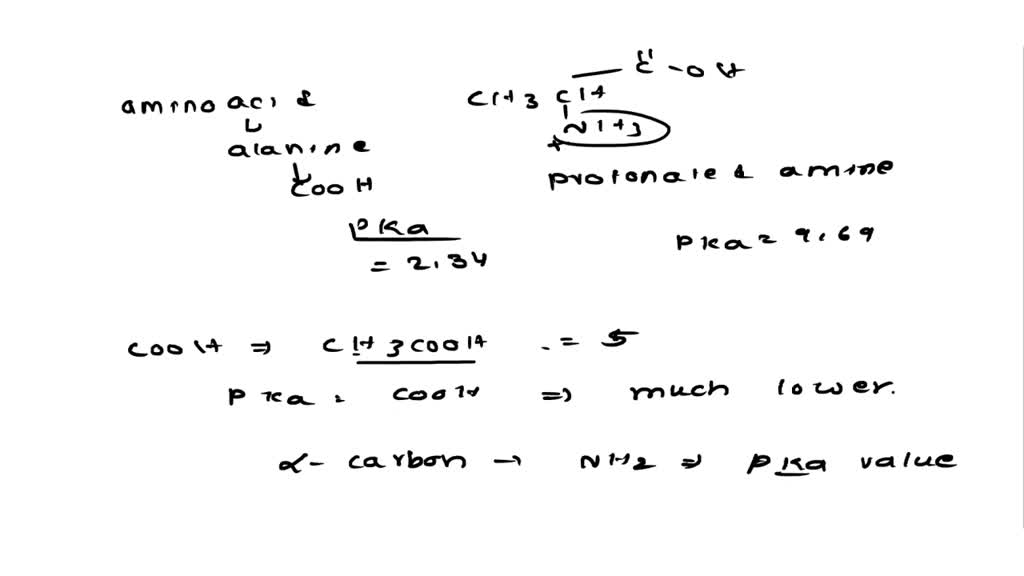 amino acid
alanine
COOH
pka
= 2.34
CH3 CH
C-OH
NH3
+
protonated amine
pka = 9.69
COOH ⇒ CH3COOH .= 5
pka = COOH ⇒ much lower.
α- carbon → NH2 ⇒ pka value